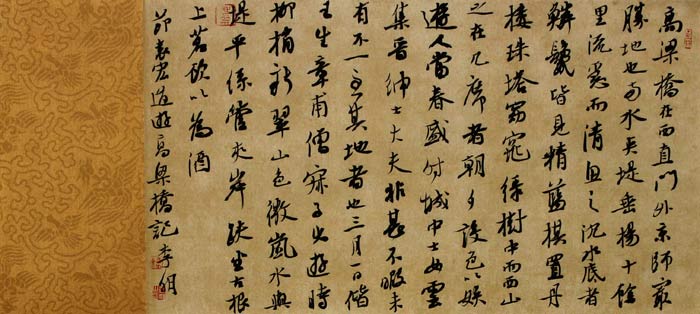 高梁橋在西直門外京師最
勝地也兩水夾堤垂楊十餘
里流急而清魚之沉水底者
鱗鬣皆見精藍棋置丹
樓珠塔窈窕綠樹中而西山
之在几席者朝夕設色以娛
遊人當春盛時城中士女雲
集晉紳士大夫非甚不暇未
有不一至其地者也三月一日偕
王生章甫僧寂子出遊時
柳梢新翠山色微嵐水與
堤平絲管夾岸趺坐古根
上茗飲以為酒
節袁宏道遊高梁橋記 李